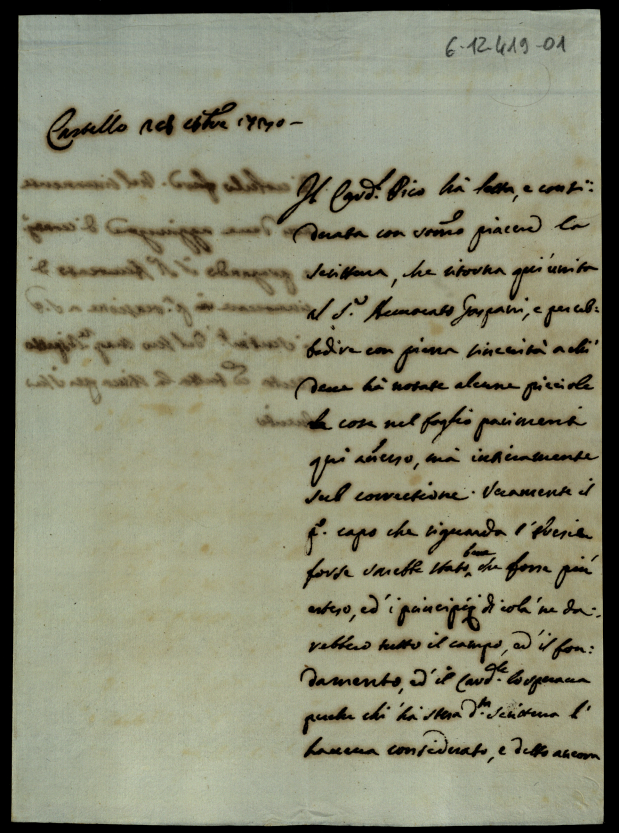 6-12-419-01
Castello 1750
Il Card.l Pico hà letta, e consi:
derata con som.o piacere la
scrittura, che ritorna quì unita
il S.r Avvocato Gaspari, e per ub:
bidire con piena sincerità a chi
deve hà notate alcune picciole
cose nel foglio parimenti
quì annesso, mà intieramente
sub correctione. Veramente il
p.o capo che riguarda l'
forse sarebbe stato bene che fosse più
esteso, ed' i principij di colà ne da:
rebbero tutto il campo, ed' il fon:
damento, ed' il Card.le lo sperava
perche chi hà stesa d.a scrittura l'
haveva considerato, e detto ancora